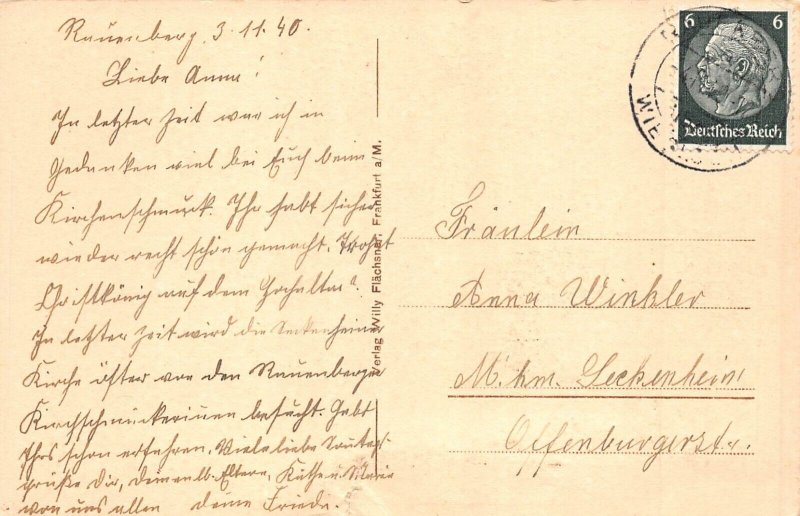 Rauenberg, 3.11.40.
Liebe Anna!
In letzter Zeit war ich in
Gedanken viel bei Euch beim
Kirchenschmuck. Ihr habt sicher
wieder recht schön gemacht. Thront
Christkönig auf dem Hochaltar?
In letzter Zeit wird die Seckenheimer
Kirche öfter von den Rauenberger
Kirchschmückerinnen besucht. Habt
Ihrs schon erfahren. Viele liebe Sonntags-
grüße Dir, Deinen lb. Eltern, Käthe u. Maria
von uns allen Deine Friede.
Verlag Willy Flächsner, Frankfurt a/M.
6 6
Deutsches Reich
WIE
Fräulein
Anna Winkler
M.hm. Seckenheim
Offenburgerstr.